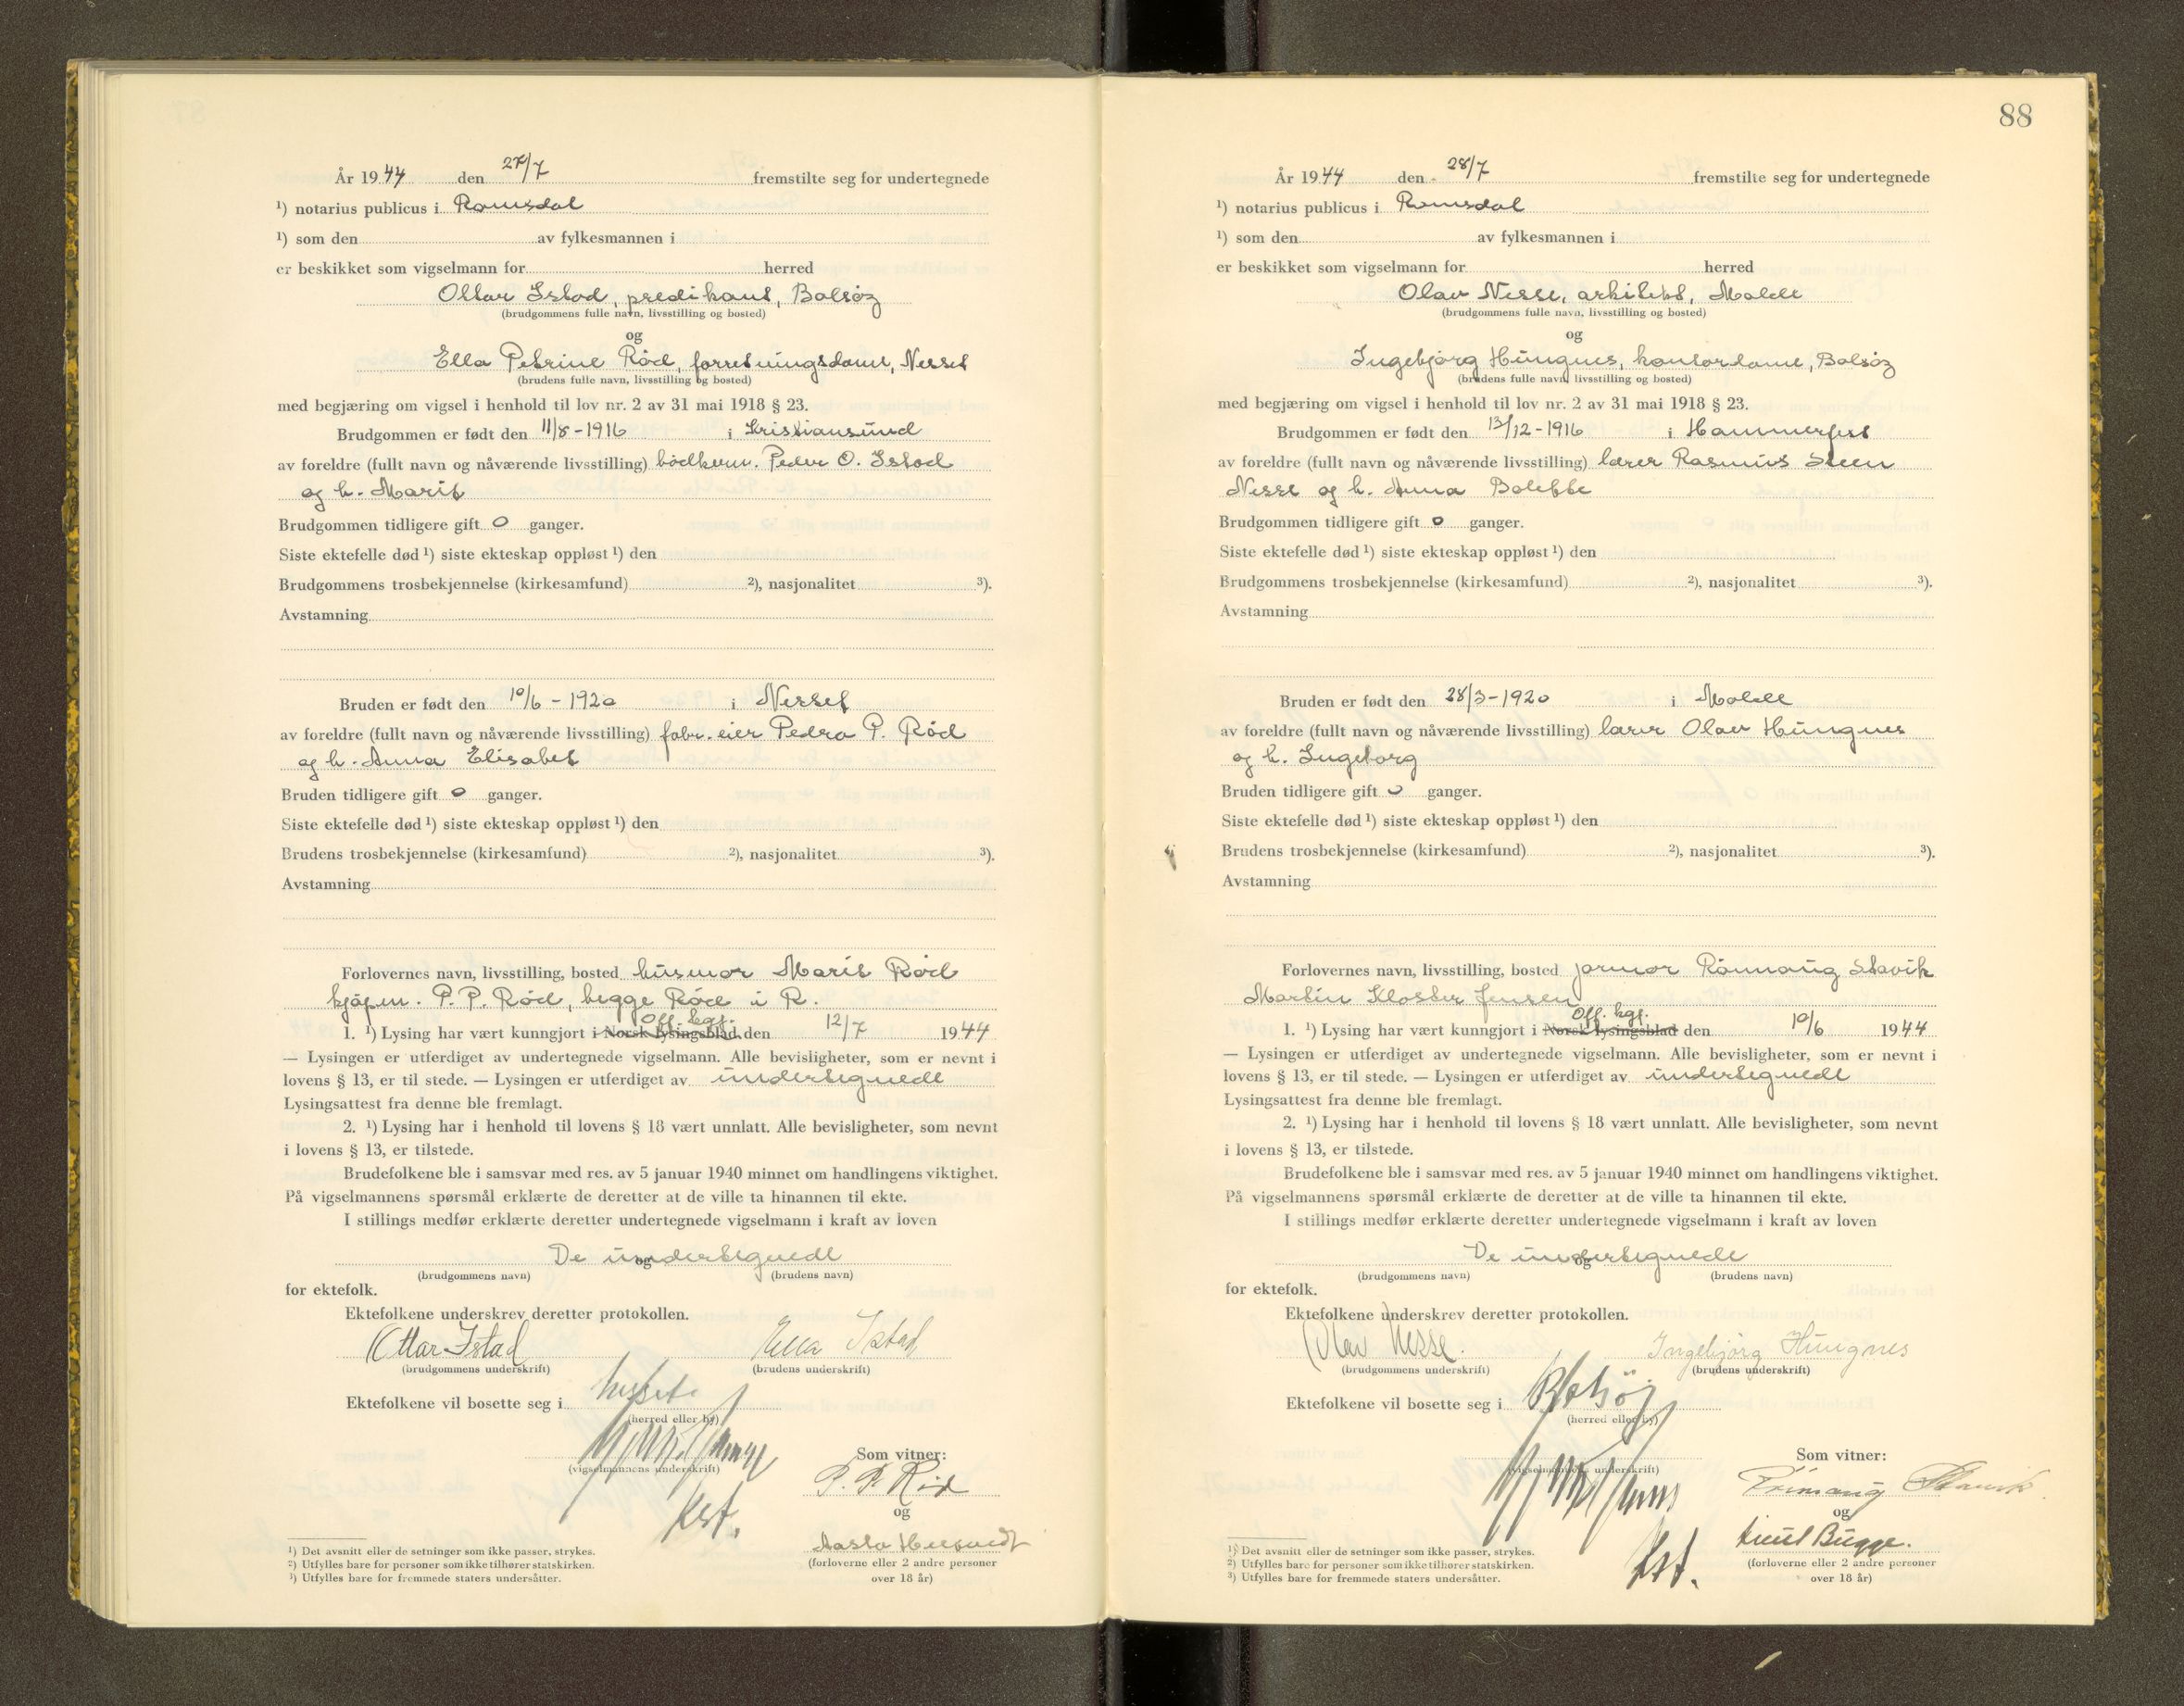 År 1944 den 27/7 fremstilte seg for undertegnede
¹) notarius publicus i Romsdal
¹) som den av fylkesmannen i
er beskikket som vigselmann for herred
Ottar Istad, predikant, Bolsøy
(brudgommens fulle navn, livsstilling og bosted)
og
Ella Petrine Rød, forretningsdame, Nesset
(brudens fulle navn, livsstilling og bosted)
med begjæring om vigsel i henhold til lov nr. 2 av 31 mai 1918 § 23.
Brudgommen er født den 11/8-1916 i Kristiansund
av foreldre (fullt navn og nåværende livsstilling) Peder O. Istad
og h. Marit
Brudgommen tidligere gift 0 ganger.
Siste ektefelle død ¹) siste ekteskap oppløst ¹) den
Brudgommens trosbekjennelse (kirkesamfund) ²), nasjonalitet ³).
Avstamning
Bruden er født den 10/6-1920 i Nesset
av foreldre (fullt navn og nåværende livsstilling) fabr. eier Pedro P. Rød
og h. Anna Elisabet
Bruden tidligere gift 0 ganger.
Siste ektefelle død ¹) siste ekteskap oppløst ¹) den
Brudens trosbekjennelse (kirkesamfund) ²), nasjonalitet ³).
Avstamning
Forlovernes navn, livsstilling, bosted husmor Marit Rød
kjøpm. P. P. Rød, begge Rød i R.
Off. kgj.
1. ¹) Lysing har vært kunngjort i Norsk lysingsblad den 12/7 1944
— Lysingen er utferdiget av undertegnede vigselmann. Alle bevisligheter, som er nevnt i
lovens § 13, er til stede. — Lysingen er utferdiget av undertegnede
Lysingsattest fra denne ble fremlagt.
2. ¹) Lysing har i henhold til lovens § 18 vært unnlatt. Alle bevisligheter, som nevnt
i lovens § 13, er tilstede.
Brudefolkene ble i samsvar med res. av 5 januar 1940 minnet om handlingens viktighet.
På vigselmannens spørsmål erklærte de deretter at de ville ta hinannen til ekte.
I stillings medfør erklærte deretter undertegnede vigselmann i kraft av loven
De undertegnede
og
(brudgommens navn) (brudens navn)
for ektefolk.
Ektefolkene underskrev deretter protokollen.
Ottar Istad Ella Istad
(brudgommens underskrift) (brudens underskrift)
Ektefolkene vil bosette seg i Nesset
(herred eller by)
(vigselmannens underskrift)
Kst.
Som vitner:
P. P. Rød
og
Aasta
(forloverne eller 2 andre personer
over 18 år)
¹) Det avsnitt eller de setninger som ikke passer, strykes.
²) Utfylles bare for personer som ikke tilhører statskirken.
³) Utfylles bare for fremmede staters undersåtter.
88
År 1944 den 28/7 fremstilte seg for undertegnede
¹) notarius publicus i Romsdal
¹) som den av fylkesmannen i
er beskikket som vigselmann for herred
Olav Nesse, arkitekt, Molde
(brudgommens fulle navn, livsstilling og bosted)
og
Ingebjørg Hungnes, kontordame, Bolsøy
(brudens fulle navn, livsstilling og bosted)
med begjæring om vigsel i henhold til lov nr. 2 av 31 mai 1918 § 23.
Brudgommen er født den 13/12-1916 i Hammerfest
av foreldre (fullt navn og nåværende livsstilling) lærer Rasmus Steen
Nesse og h. Anna Bolette
Brudgommen tidligere gift 0 ganger.
Siste ektefelle død ¹) siste ekteskap oppløst ¹) den
Brudgommens trosbekjennelse (kirkesamfund) ²), nasjonalitet ³).
Avstamning
Bruden er født den 28/3-1920 i Molde
av foreldre (fullt navn og nåværende livsstilling) lærer Olav Hungnes
og h. Ingeborg
Bruden tidligere gift 0 ganger.
Siste ektefelle død ¹) siste ekteskap oppløst ¹) den
Brudens trosbekjennelse (kirkesamfund) ²), nasjonalitet ³).
Avstamning
Forlovernes navn, livsstilling, bosted jormor Rønnaug Stavik
Martin Kloster Jensen
Off. kgj.
1. ¹) Lysing har vært kunngjort i Norsk lysingsblad den 10/6 1944
— Lysingen er utferdiget av undertegnede vigselmann. Alle bevisligheter, som er nevnt i
lovens § 13, er til stede. — Lysingen er utferdiget av undertegnede
Lysingsattest fra denne ble fremlagt.
2. ¹) Lysing har i henhold til lovens § 18 vært unnlatt. Alle bevisligheter, som nevnt
i lovens § 13, er tilstede.
Brudefolkene ble i samsvar med res. av 5 januar 1940 minnet om handlingens viktighet.
På vigselmannens spørsmål erklærte de deretter at de ville ta hinannen til ekte.
I stillings medfør erklærte deretter undertegnede vigselmann i kraft av loven
De undertegnede
og
(brudgommens navn) (brudens navn)
for ektefolk.
Ektefolkene underskrev deretter protokollen.
Olav Nesse. Ingebjørg Hungnes
(brudgommens underskrift) (brudens underskrift)
Ektefolkene vil bosette seg i Bolsøy
(herred eller by)
(vigselmannens underskrift)
Kst.
Som vitner:
Rønnaug Stavik
og
Knut Bugge.
(forloverne eller 2 andre personer
over 18 år)
¹) Det avsnitt eller de setninger som ikke passer, strykes.
²) Utfylles bare for personer som ikke tilhører statskirken.
³) Utfylles bare for fremmede staters undersåtter.